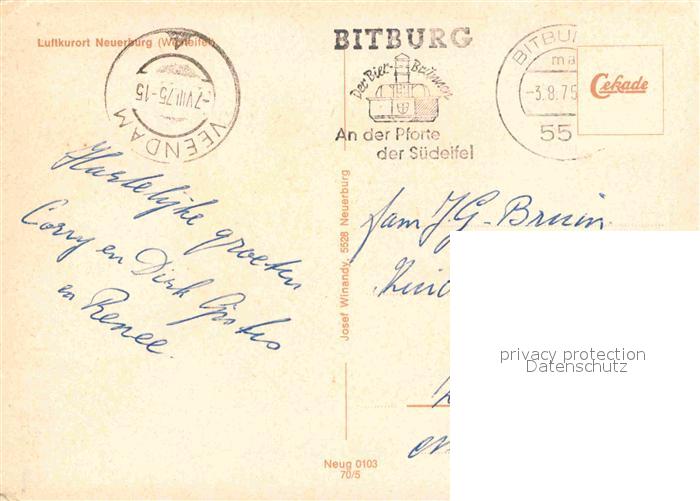 Luftkurort Neuerburg (Westeifel)
VEENDAM
-7.VIII.75-15
BITBURG
Der Bier-Brunnen
An der Pforte
der Südeifel
BITBU
ma
-3.8.75
55
Cekade
Hartelijke groeten
Corry en Dirk
en Renee.
Josef Winandy, 5528 Neuerburg
fam J.G. Bruin
Neug 0103
70/5
privacy protection
Datenschutz